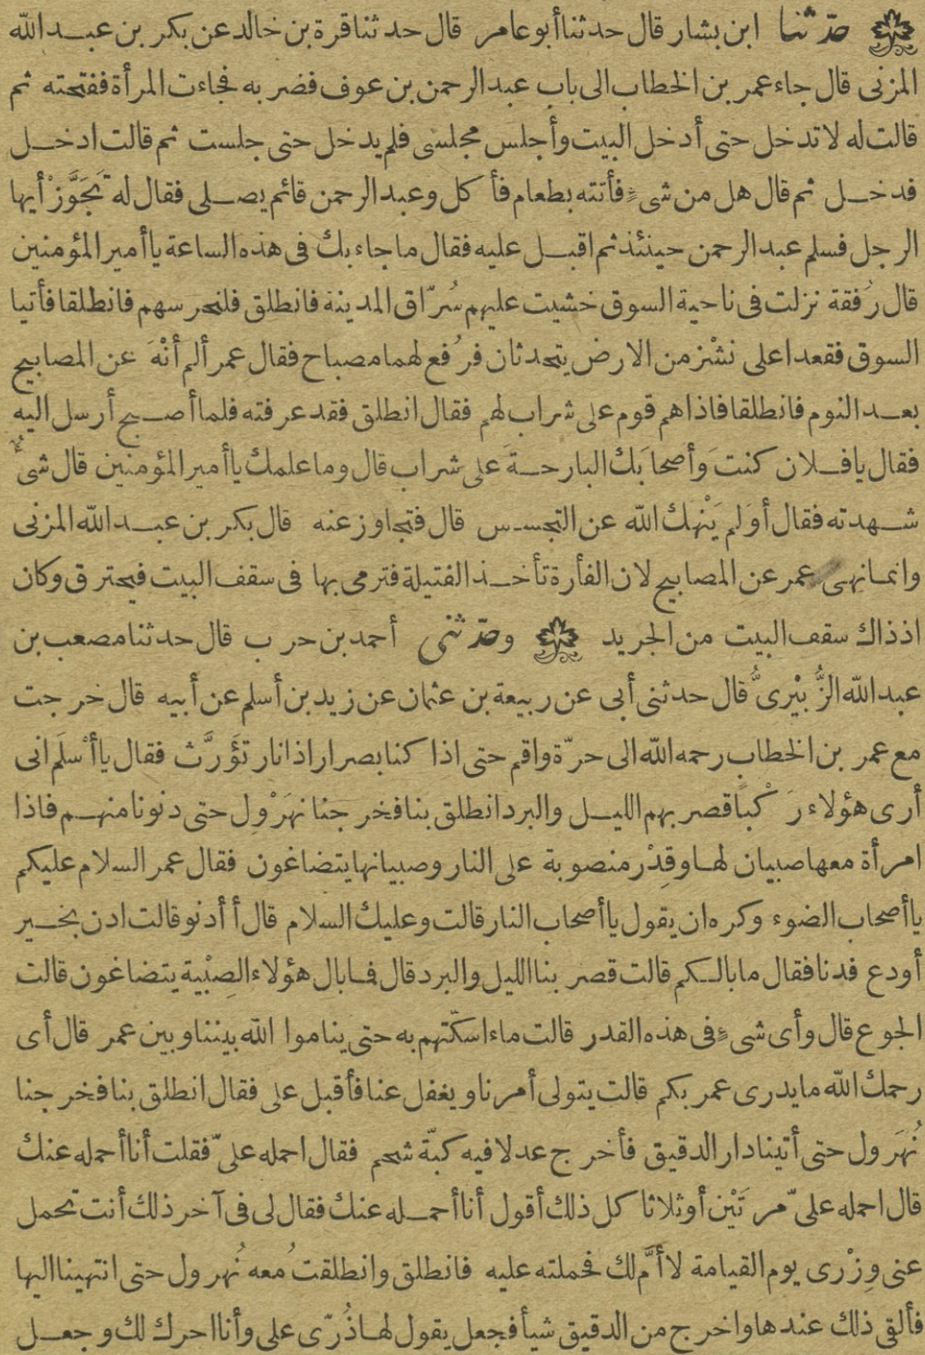 حدّثنا ابن بشار قال حدثنا أبو عامر قال حدثنا قرة بن خالد عن بكر بن عبد الله
المزنى قال جاء عمر بن الخطاب الى باب عبد الرحمن بن عوف فضربه فجاءت المرأة ففتحته ثم
قالت له لا تدخل حتى أدخل البيت وأجلس مجلسى فلم يدخل حتى جلست ثم قالت ادخل
فدخل ثم قال هل من شىءٍ فأتته بطعام فأكل وعبد الرحمن قائم يصلى فقال له تَجَوَّزْ أيها
الرجل فسلم عبد الرحمن حينئذ ثم اقبل عليه فقال ما جاء بك فى هذه الساعة يا أمير المؤمنين
قال رُفقة نزلت فى ناحية السوق خشيت عليهم سُرّاق المدينة فانطلق فلنحرسهم فانطلقا فأتيا
السوق فقعدا على نشْز من الارض يتحدثان فرُفع لهما مصباح فقال عمر ألم أنْهَ عن المصابيح
بعد النوم فانطلقا فاذا هم قوم على شراب لهم فقال انطلق فقد عرفته فلما أصبح أرسل اليه
فقال يا فلان كنتَ وأصحابَك البارحةَ على شراب قال وما علمك يا أمير المؤمنين قال شىءٌ
شهدته فقال أوَلم يَنْهَك الله عن التجسس قال فتجاوز عنه قال بكر بن عبد الله المزنى
وانما نهى عمر عن المصابيح لان الفأرة تأخذ الفتيلة فترمى بها فى سقف البيت فيحترق وكان
اذ ذاك سقف البيت من الجريد وحدّثنى أحمد بن حرب قال حدثنا مصعب بن
عبد الله الزُّبيْرىُّ قال حدثنى أبى عن ربيعة بن عثمان عن زيد بن أسلم عن أبيه قال خرجت
مع عمر بن الخطاب رحمه الله الى حرّة واقم حتى اذا كنا بصرار اذا نار تؤَرَّث فقال يا أسْلَم انى
أرى هؤلاء رَكْبا قصر بهم الليل والبرد انطلق بنا فخرجنا نهَرْول حتى دنونا منهم فاذا
امرأة معها صبيان لها وقِدْر منصوبة على النار وصبيانها يتضاغون فقال عمر السلام عليكم
يا أصحاب الضوء وكره ان يقول يا أصحاب النار قالت وعليك السلام قال أأدنو قالت ادن بخير
أودع فدنا فقال ما بالكم قالت قصر بنا الليل والبرد قال فما بال هؤلاء الصِبْية يتضاغون قالت
الجوع قال وأى شىءٍ فى هذه القدر قالت ماء اسكّتهم به حتى يناموا الله بيننا وبين عمر قال أى
رحمك الله ما يدرى عمر بكم قالت يتولى أمرنا ويغفل عنا فأقبل على فقال انطلق بنا فخرجنا
نُهَرول حتى أتينا دار الدقيق فأخرج عدلا فيه كبّة شحم فقال احمله علىّ فقلت أنا أحمله عنك
قال احمله علىّ مرتَيْن أو ثلاثا كل ذلك أقول أنا أحمله عنك فقال لى فى آخر ذلك أنت تحمل
عنى وِزْرى يوم القيامة لا أمَّ لك فحملته عليه فانطلق وانطلقتُ معه نُهرول حتى انتهينا اليها
فألقى ذلك عندها واخرج من الدقيق شيأ فجعل يقول لها ذُرّى على وأنا احرك لك وجعل